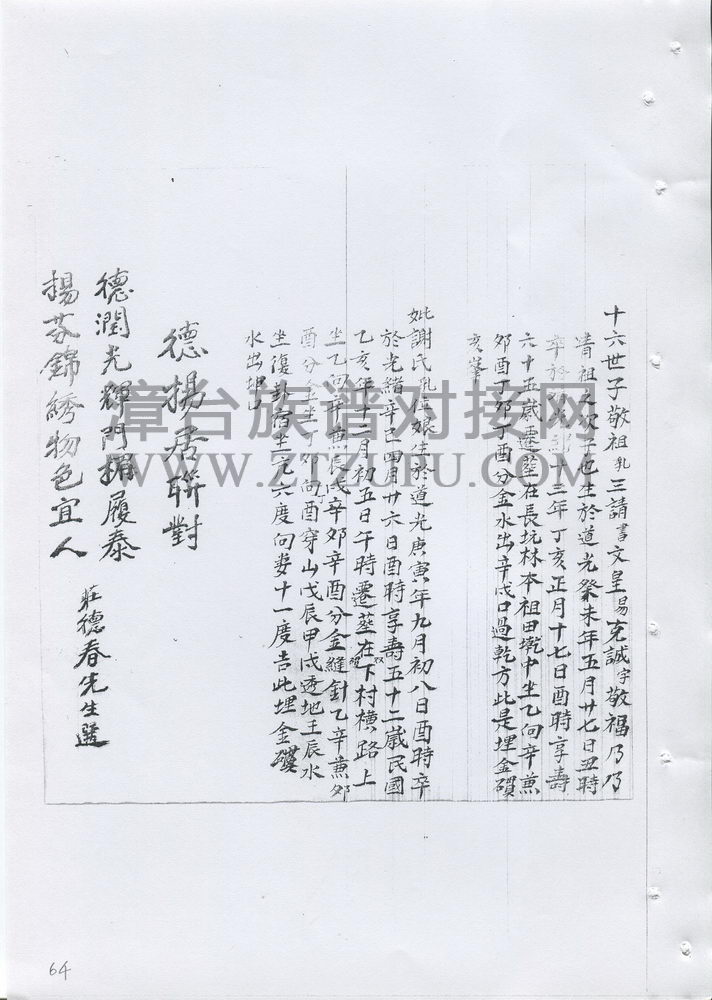 十六世子敬祖乳三請書文皇易克誠字敬福乃乃
清祖之次子也生於道光癸未年五月廿七日丑時
卒於光緒十三年丁亥正月十七日酉時享壽
六十五歲遷葬在長坑林本祖田墘中坐乙向辛兼
卯酉丁卯丁酉分金水出辛戌口過乾方此是埋金礸
亥峯
妣謝氏乳 娘生於道光庚寅年九月初八日酉時卒
於光緒辛巳四月廿六日酉時享壽五十二歲民國
乙亥年十二月初五日午時遷葬在下村橫路上
坐乙向辛兼辰戌辛卯辛酉分金縫針乙辛兼卯
酉分金坐丁卯向丁酉穿山戊辰甲戌透地壬辰水
坐復 宿坐亢六度向婁十一度吉此埋金礸
水出坤口
德揚居聯對
德潤光輝門擁履泰
揚芬錦綉物色宜人
莊德春先生選
64
章台族谱对接网
WWW.ZTSUPU.COM